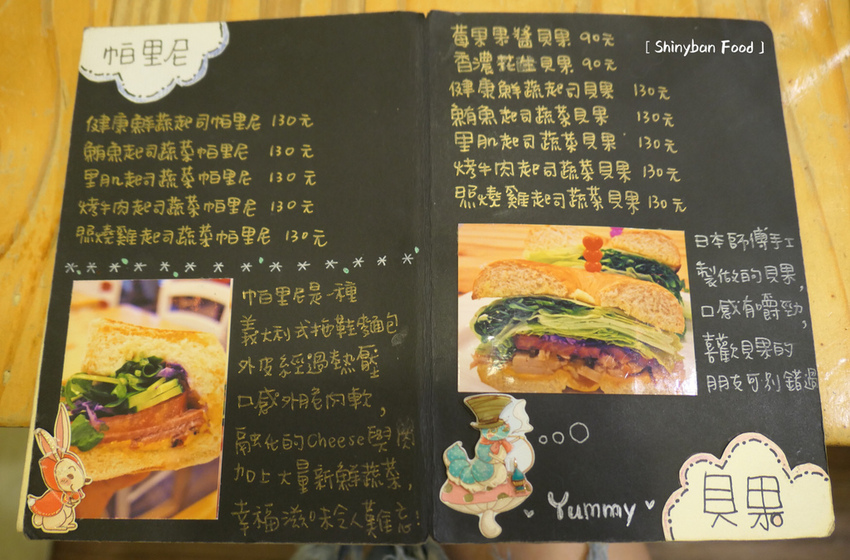 帕里尼
健康鮮蔬起司帕里尼 130元
鮪魚起司蔬菜帕里尼 130元
里肌起司蔬菜帕里尼 130元
烤牛肉起司蔬菜帕里尼 130元
照燒雞起司蔬菜帕里尼 130元
帕里尼是一種
義大利式拖鞋麵包
外皮經過熱壓
口感外脆內軟，
融化的Cheese與肉
加上大量新鮮蔬菜，
幸福滋味令人難忘！
莓果果醬貝果 90元
香濃花生貝果 90元
[ Shinyban Food ]
健康鮮蔬起司貝果 130元
鮪魚起司蔬菜貝果 130元
里肌起司蔬菜貝果 130元
烤牛肉起司蔬菜貝果 130元
照燒雞起司蔬菜貝果 130元
日本師傅手工
製做的貝果，
口感有嚼勁，
喜歡貝果的
朋友可別錯過
Yummy
貝果